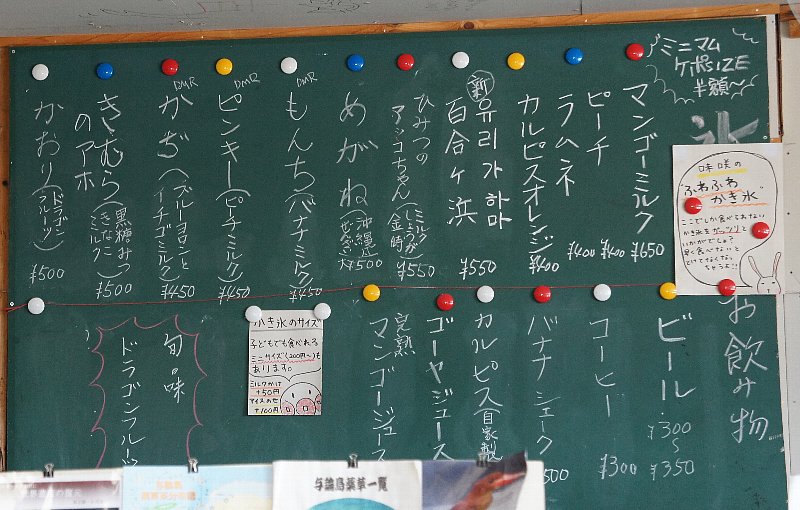 氷
ミニマム
ケポSIZE
半額〜
マンゴーミルク ¥650
ピーチ ¥400
ラムネ ¥400
カルピスオレンジ ¥400
新
유리가하마
百合ヶ浜 ¥550
ひみつの
アンコちゃん(ミルク金時) ¥550
めがね ¥500
DMR
もんち(バナナミルク) ¥450
DMR
ピンキー(ピーチミルク) ¥450
DMR
かぢ(ブルーハワイと
イチゴミルク) ¥450
きむら
のアホ(黒糖みつ
きなこ
ミルク) ¥500
かおり(ドラゴン
フルーツ) ¥500
味咲の
"ふわふわ
かき氷"
ここでしか食べられない
かき氷をガッツリと
いかがでしょ?
早く食べないと
とけてなくなっ
ちゃうよ!!
お飲み物
ビール ¥300
〜
¥350
コーヒー ¥300
バナナシェーク
カルピス(自家製)
ゴーヤジュース
完熟
マンゴージュース
かき氷のサイズ
子どもでも食べれる
ミニサイズ(200円〜)も
あります。
ミルクかけ
+50円
アイスのせ
+100円
旬の味
ドラゴンフルーツ
与論島薬草一覧